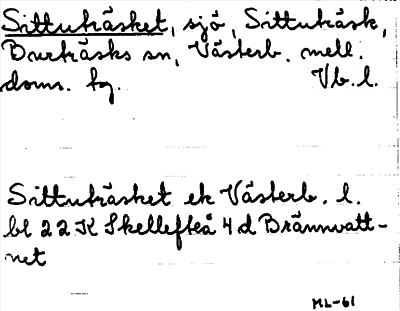 Sittuträsket, sjö, Sittuträsk,
Burträsks sn, Västerb. mell.
doms. tg. Vb. l.
Sittuträsket ek Västerb. l.
bl 22 K Skellefteå 4 d Brännvatt-
net
ML-61